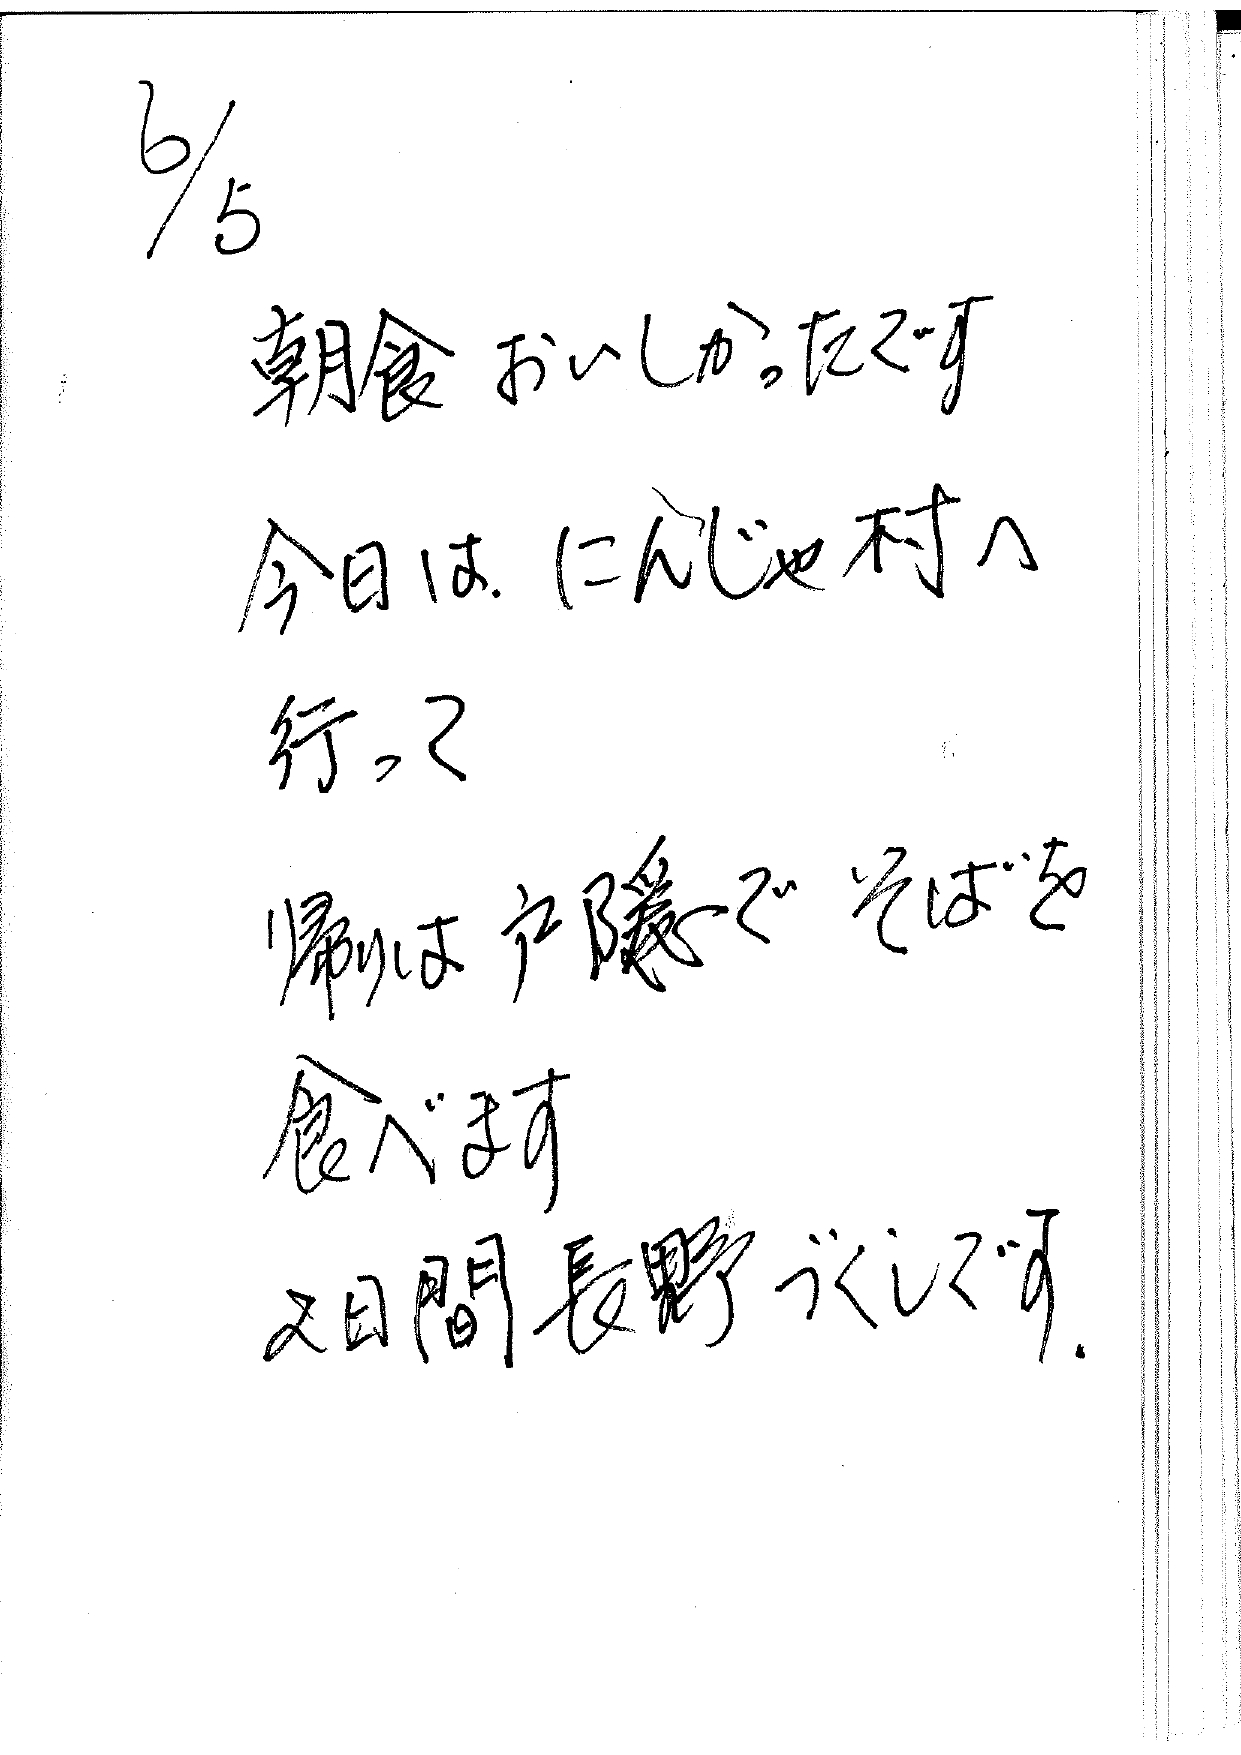 6/5
朝食 おいしかったです
今日は. にんじゃ村へ
行って
帰りは 戸隠で そばを
食べます
2日間 長野 づくしです.